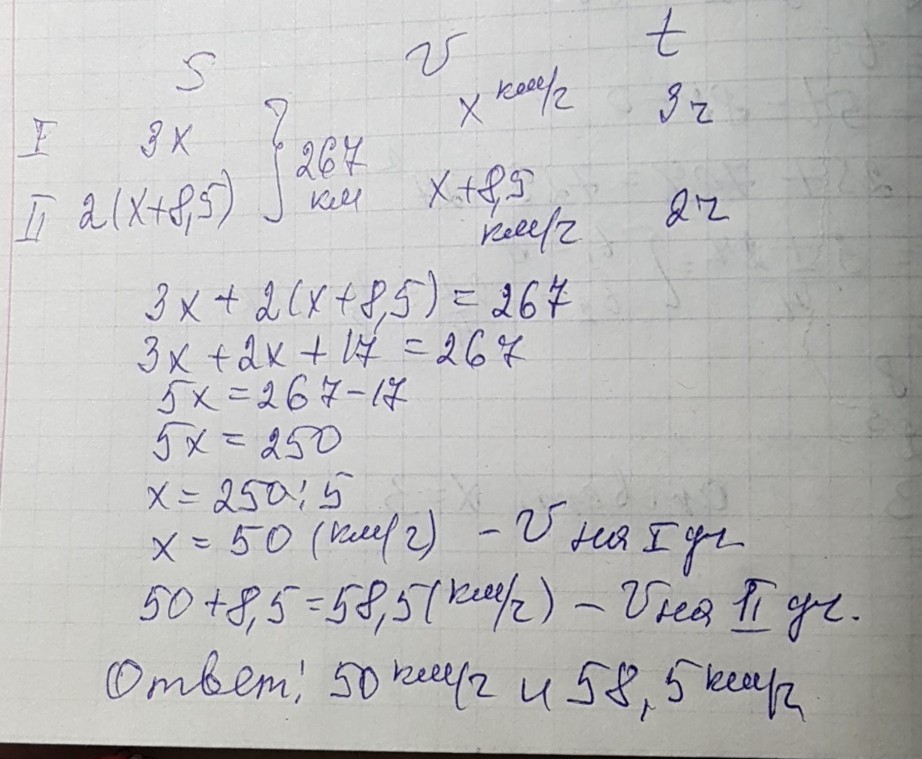 S v t
I 3x } 267 км x км/ч 3ч
II 2(x+8,5) x+8,5 км/ч 2ч
3x + 2(x+8,5) = 267
3x + 2x + 17 = 267
5x = 267 - 17
5x = 250
x = 250 : 5
x = 50 (км/ч) - v на I уч
50 + 8,5 = 58,5 (км/ч) - v на II уч.
Ответ: 50 км/ч и 58,5 км/ч